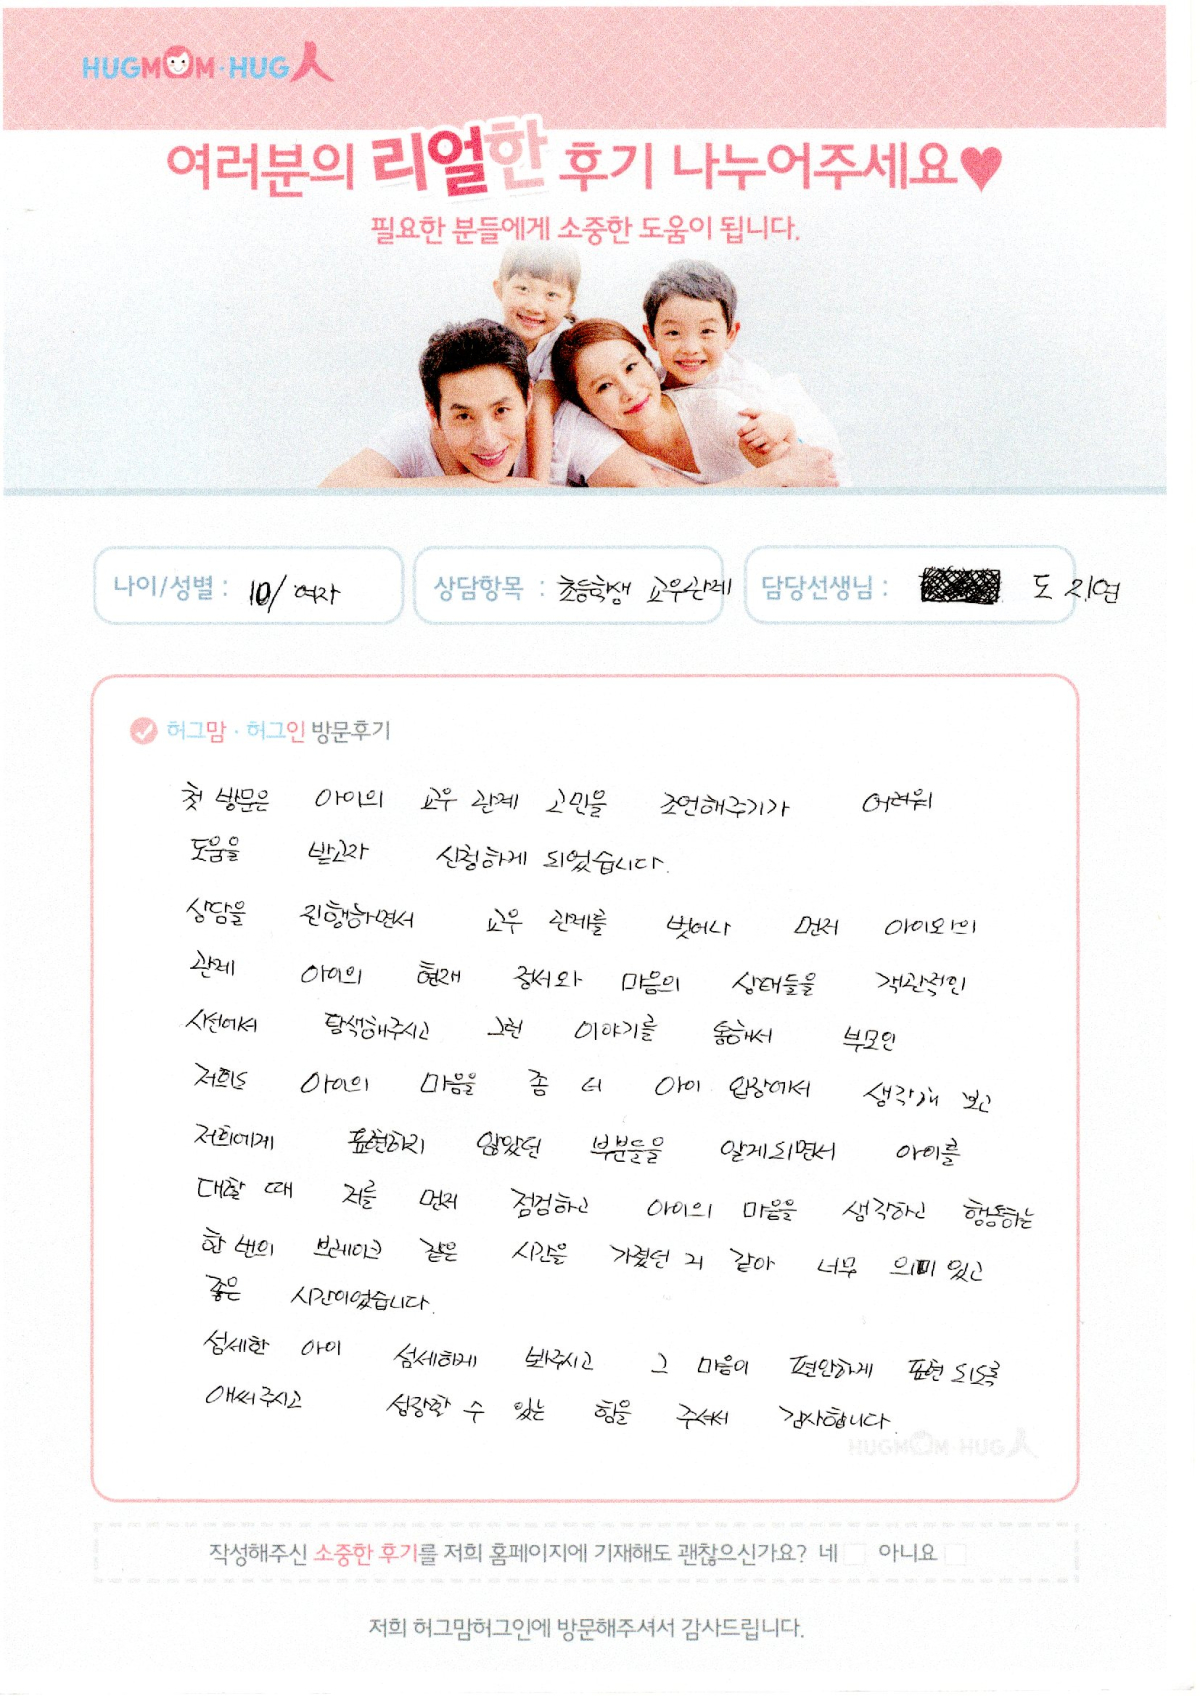 HUGMOM·HUG人
여러분의 리얼한 후기 나누어주세요♥
필요한 분들에게 소중한 도움이 됩니다.
나이/성별 : 10/ 여자
상담항목 : 초등학생 교우관계
담당선생님 : 도 지연
허그맘·허그인 방문후기
첫 방문은 아이의 교우 관계 고민을 조언해주기가 어려워
도움을 받고자 신청하게 되었습니다.
상담을 진행하면서 교우 관계를 벗어나 먼저 아이와의
관계 아이의 현재 정서와 마음의 상태들을 객관적인
시선에서 탐색해주시고 그런 이야기를 통해서 부모인
저희도 아이의 마음을 좀 더 아이 입장에서 생각해 보고
저희에게 표현하지 않았던 부분들을 알게되면서 아이를
대할 때 저를 먼저 점검하고 아이의 마음을 생각하고 행동하는
한 번의 브레이크 같은 시간을 가졌던 거 같아 너무 의미 있고
좋은 시간이었습니다.
섬세한 아이 섬세하게 봐주시고 그 마음이 편안하게 표현 되도록
애써주시고 성장할 수 있는 힘을 주셔서 감사합니다.
HUGMOM·HUG人
작성해주신 소중한 후기를 저희 홈페이지에 기재해도 괜찮으신가요? 네 아니요
저희 허그맘허그인에 방문해주셔서 감사드립니다.